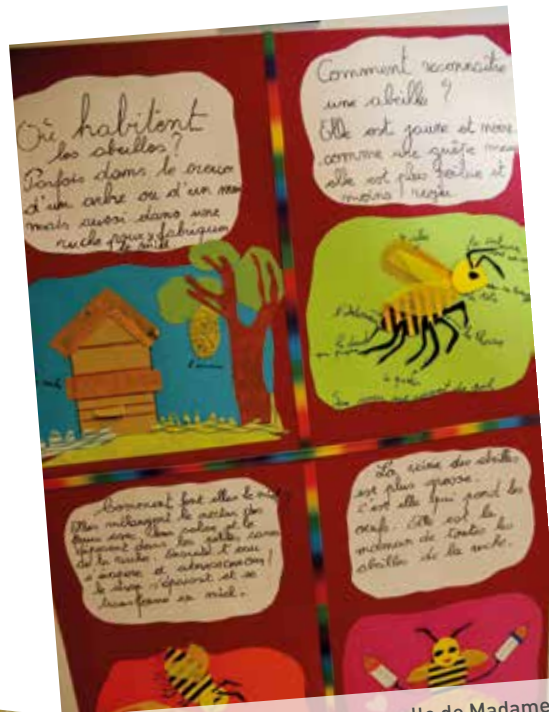 Où habitent
les abeilles?
Parfois dans le creux
d'un arbre ou d'un mur
mais aussi dans une
ruche pour y fabriquer
le miel
Comment reconnaître
une abeille ?
Elle est jaune et noire
comme une guêpe mais
elle est plus poilue et
moins
l'essaim
la tête
le thorax
l'abdomen
le dard
6 pattes
Comment font elles le miel?
Elles mélangent le nectar des
fleurs avec leur salive et le
déposent dans les petites cases
de la ruche. Ensuite l'eau
s'évapore et
le sirop s'épaissit et se
transforme en miel.
La reine des abeilles
est plus grosse.
c'est elle qui pond les
œufs. Elle est la
maman de toutes les
abeilles de la ruche.
de Madame